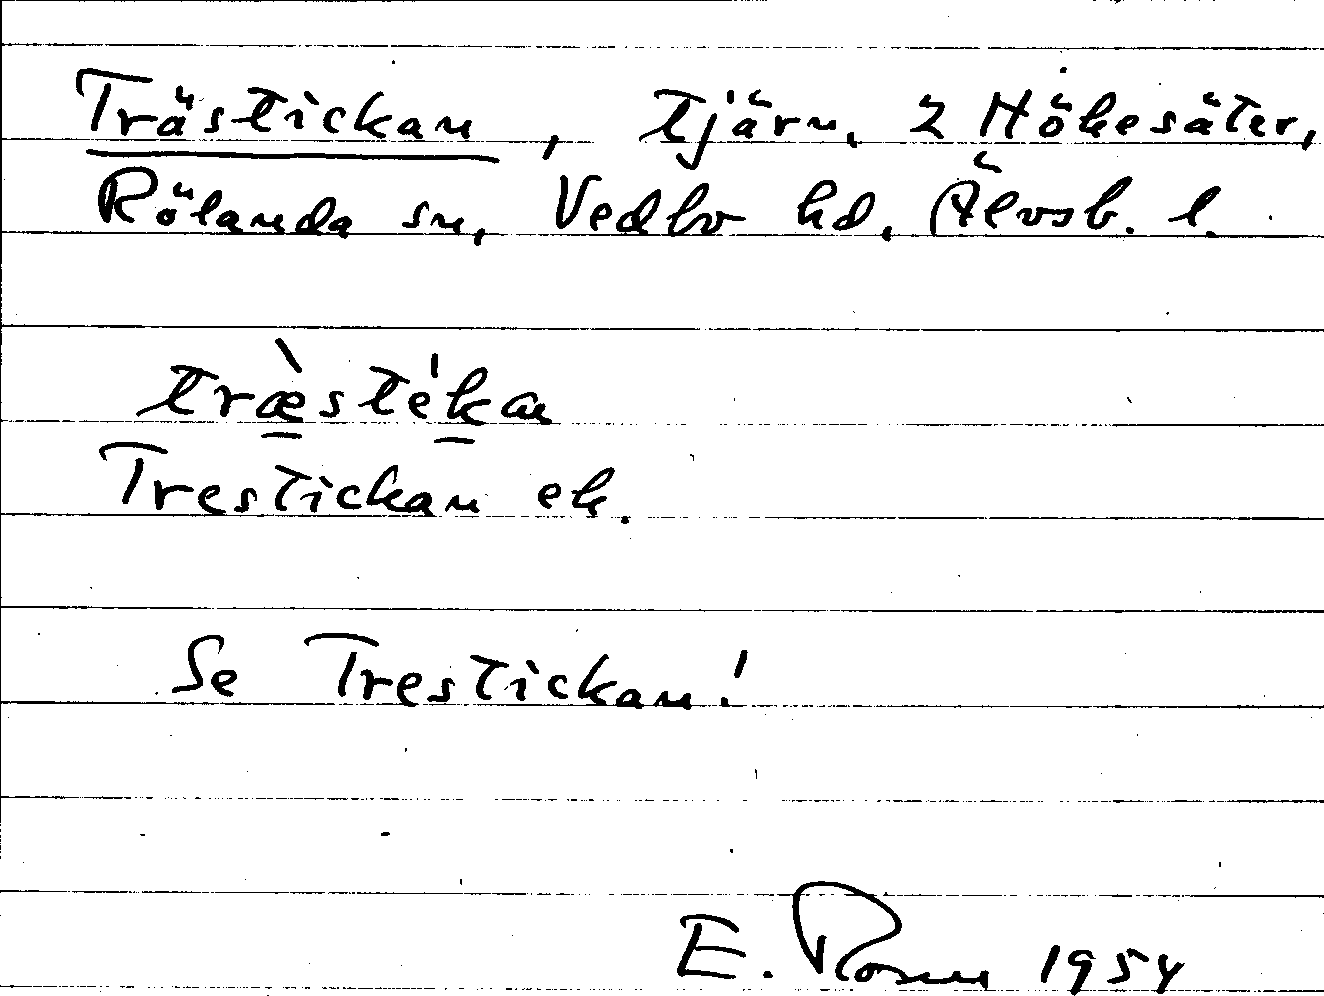 Trästickan, tjärn, 2 Hökesäter,
Rölanda sn, Vedbo hd, Älvsb. l.
træ̀sté̍kan
Trestickan ek.
Se Trestickan!
E. Rosen 1954